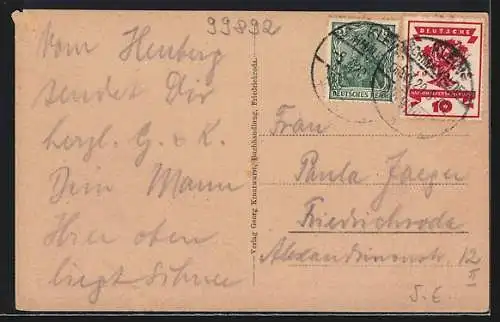 99892
Vom Heuberg
sendet Dir
herzl. G. & K.
Dein Mann
Hier oben
liegt Schnee
Verlag Georg Knauwurst, Buchhandlung, Friedrichroda.
DEUTSCHES REICH
DEUTSCHE
10
Frau
Paula Jaeger
Friedrichroda
Alexandrinenstr. 12
II
S. E.